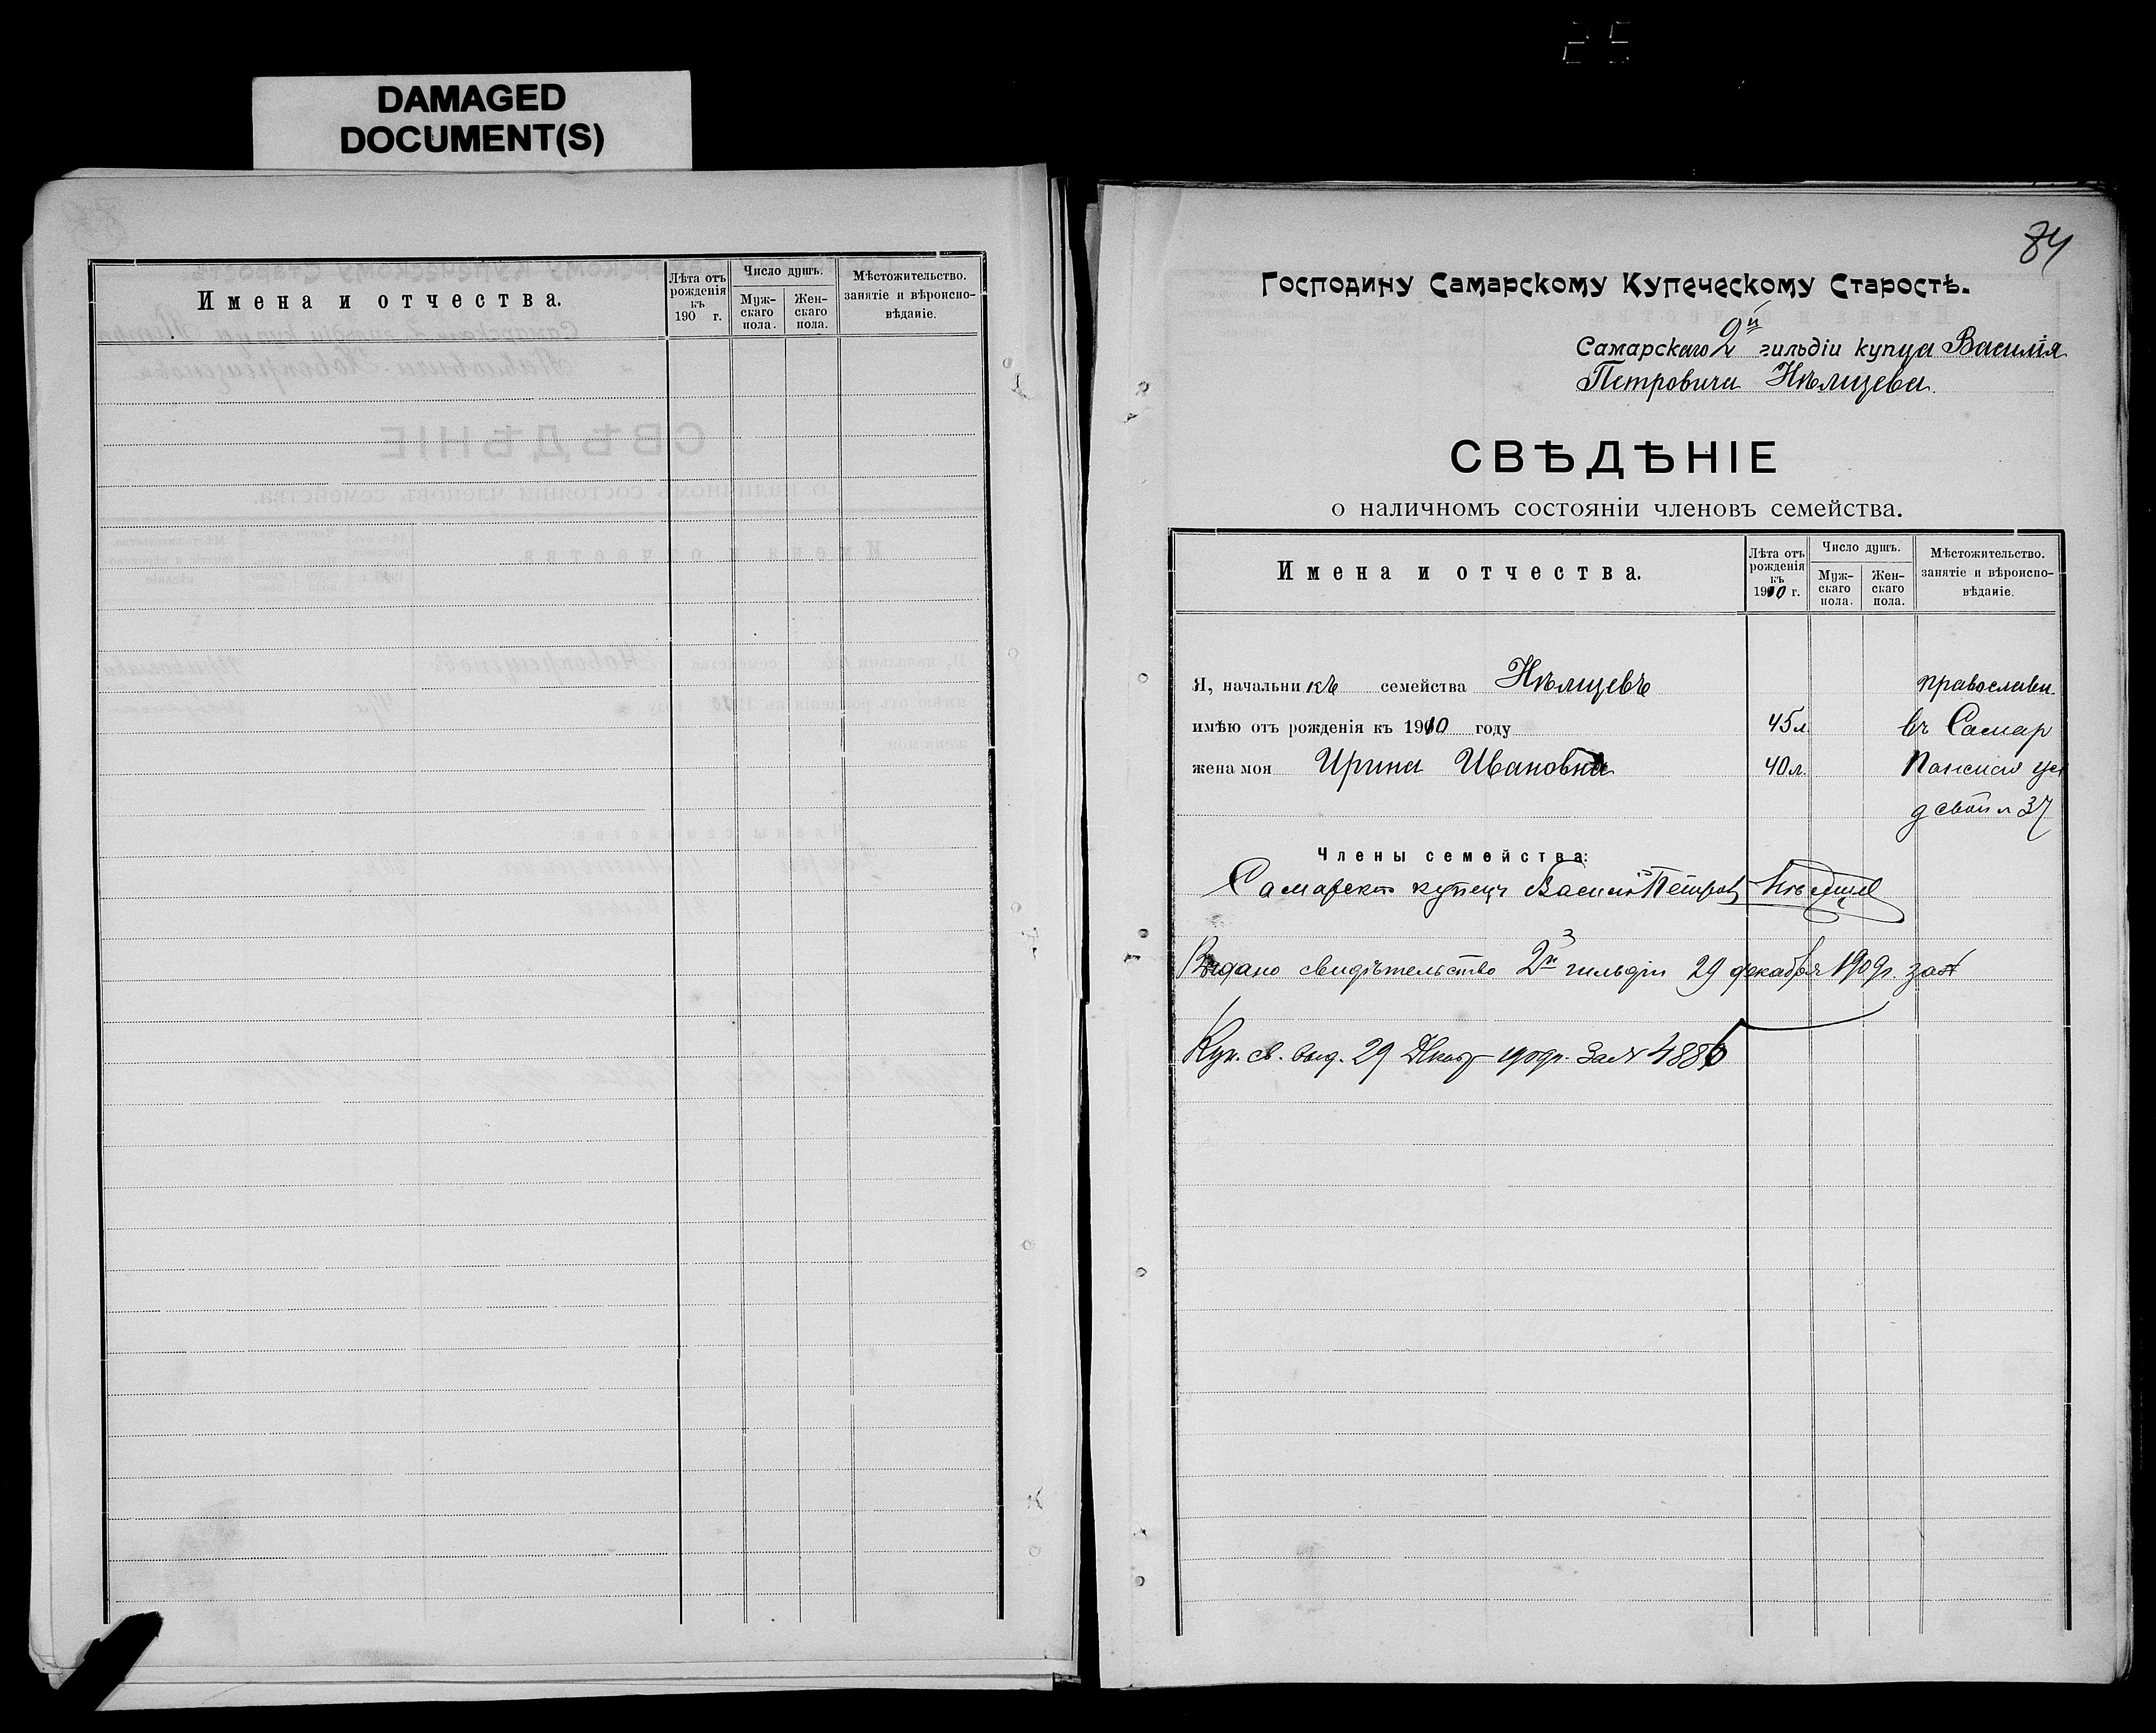 DAMAGED
DOCUMENT(S)
Имена и отчества.
Лѣта отъ рожденія къ 190 г.
Число душъ.
Муж-скаго пола.
Жен-скаго пола.
Мѣстожительство. занятіе и вѣроиспо-вѣданіе.
84
Господину Самарскому Купеческому Старостѣ.
Самарскаго 2й гильдіи купца Василія
Петровича Нѣмцева.
СВѢДѢНІЕ
о наличномъ состояніи членовъ семейства.
Имена и отчества.
Лѣта отъ рожденія къ 1910 г.
Число душъ.
Муж-скаго пола.
Жен-скаго пола.
Мѣстожительство. занятіе и вѣроиспо-вѣданіе.
Я, начальникъ семейства Нѣмцевъ православн.
имѣю отъ рожденія къ 1910 году 45 л. въ Самар
жена моя Ирина Ивановна 40 л.
д свой 37
Члены семейства:
Самарскій купецъ Василій Петров Нѣмцев
Выдано свидѣтельство 2й гильдіи 29 декабря 1909г. за №
Куп. св. выд. 29 Декаб 1909г. за № 4886